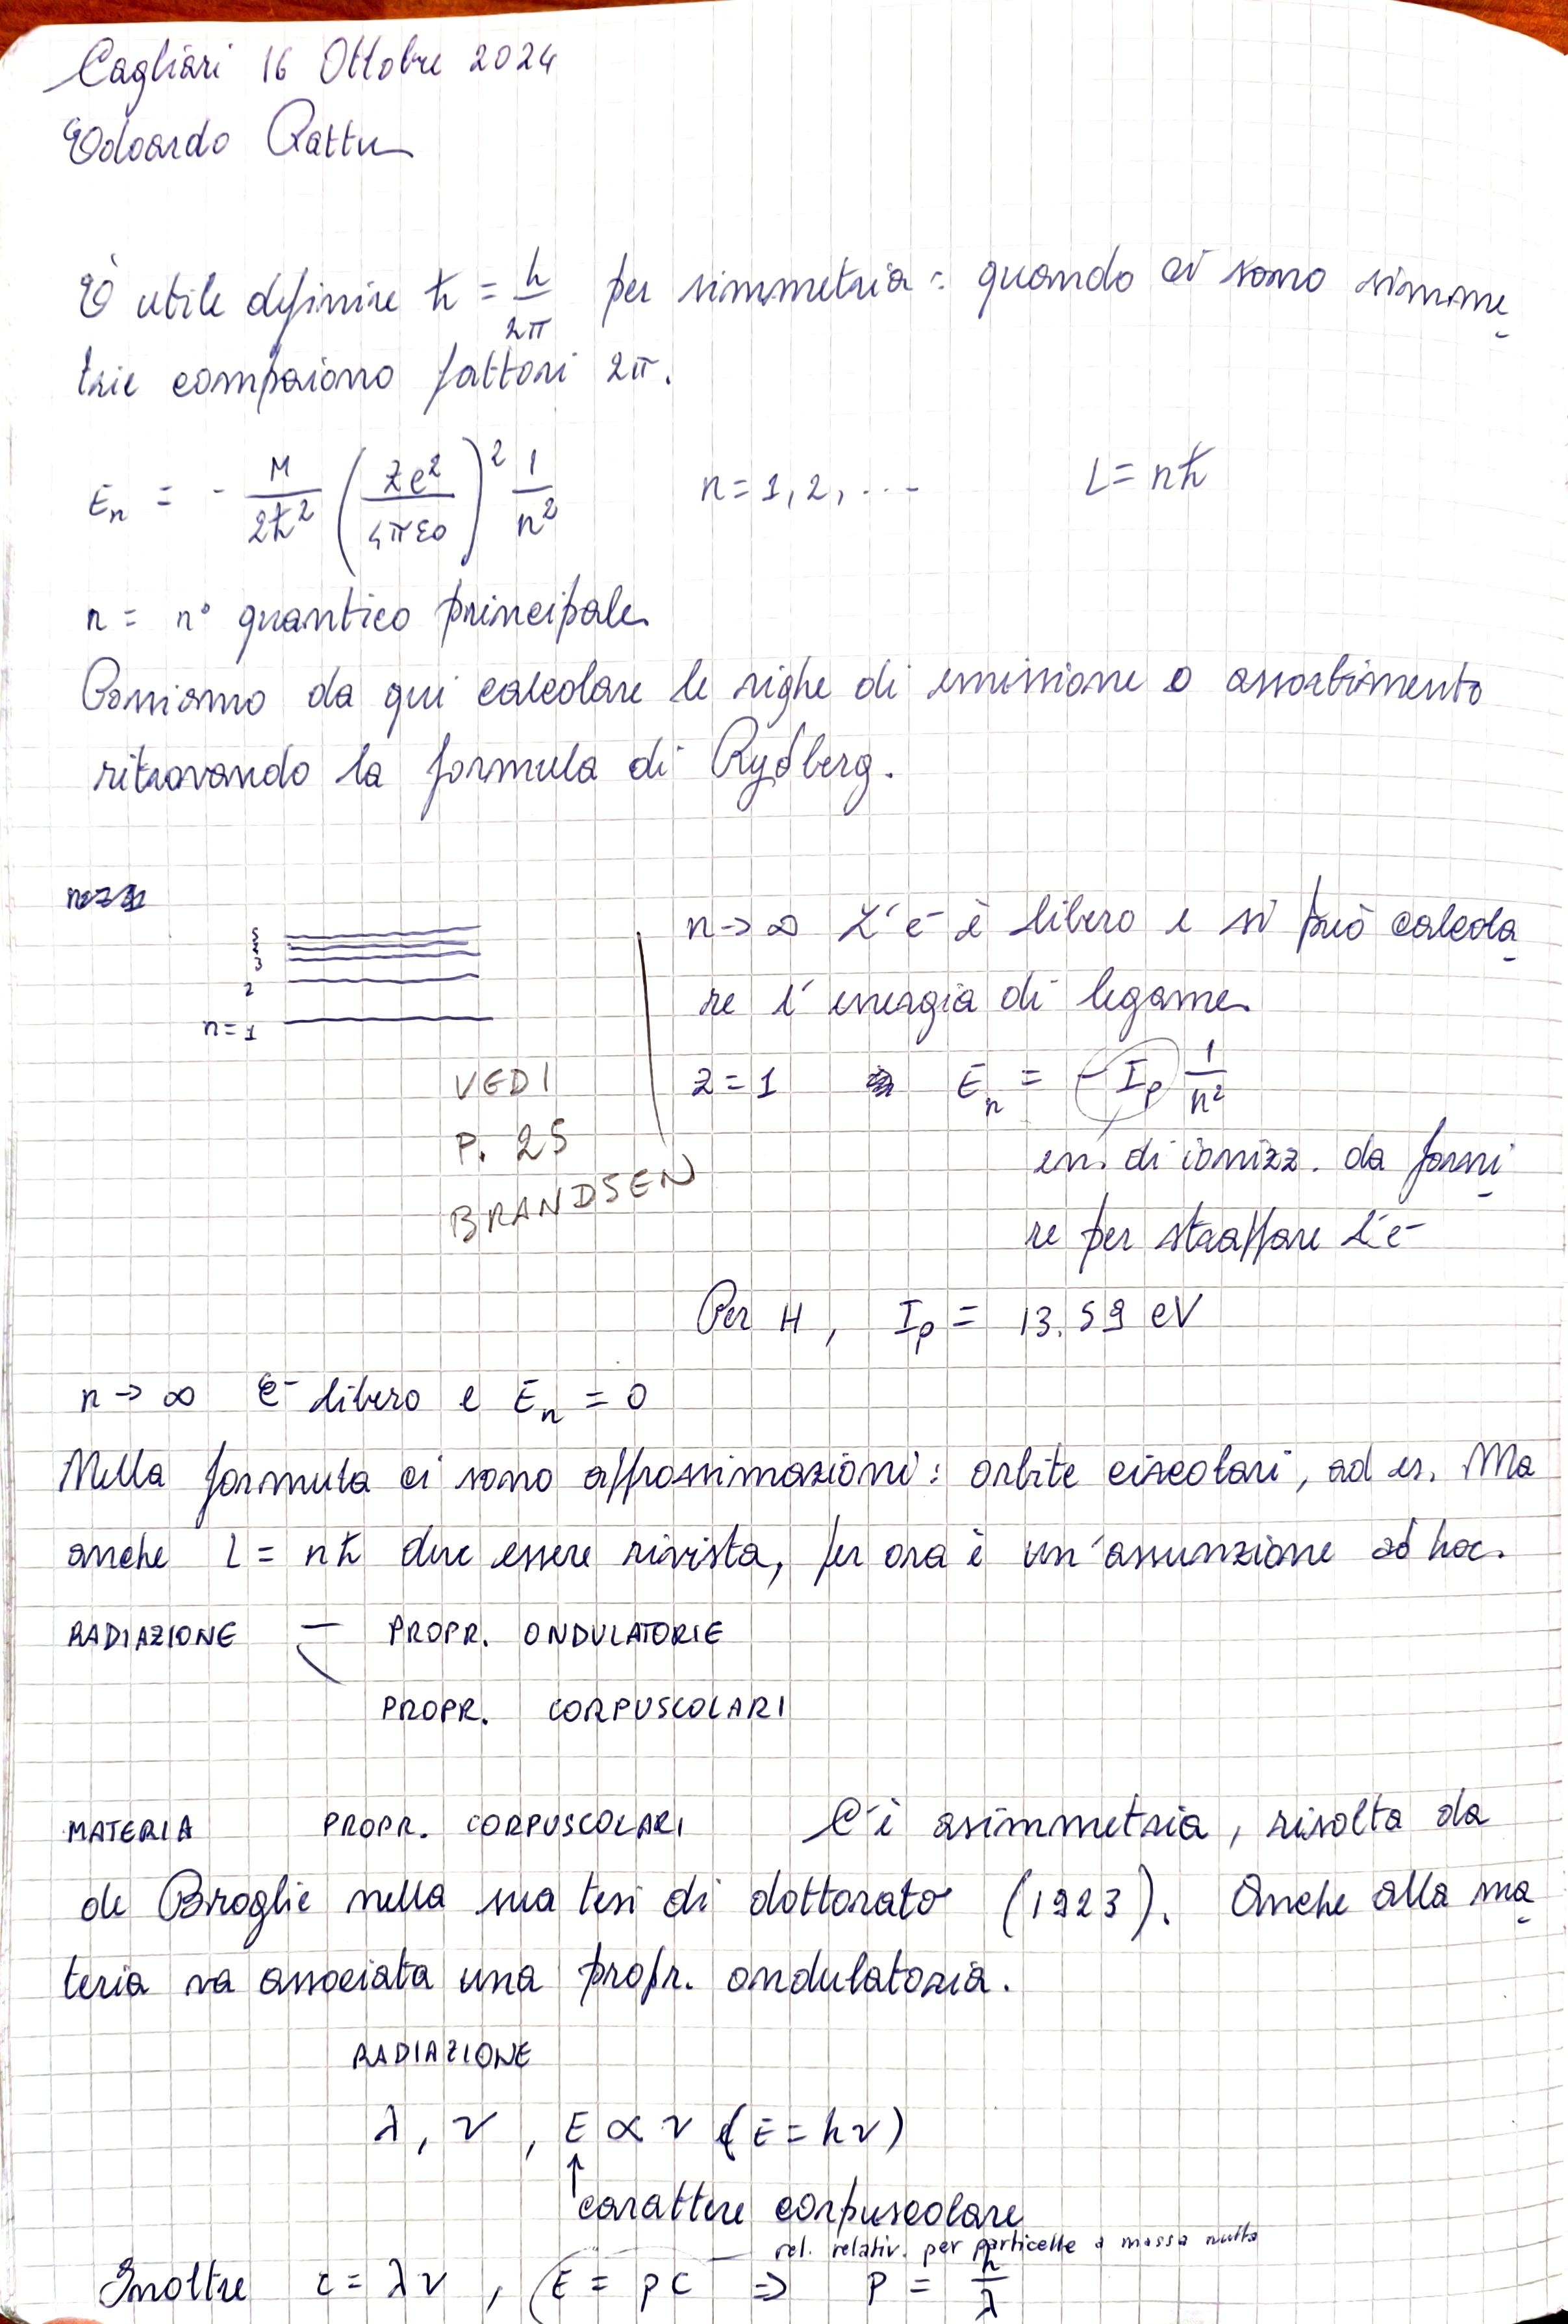 Cagliari 16 Ottobre 2024
Edoardo Rattu
È utile definire ħ = h/2π per simmetria: quando ci sono simme
trie compaiono fattori 2π.
En = - M/2ħ² (Ze²/4πε0)² 1/n² n=1,2,... L=nħ
n = n° quantico principale
Possiamo da qui calcolare le righe di emissione o assorbimento
ritrovando la formula di Rydberg.
5
4
3
2
n=1
VEDI
P. 25
BRANDSEN
n→∞ L'e⁻ è libero e si può calcola
re l'energia di legame
Z=1 En = -Ip 1/n²
en. di ionizz. da forni
re per strappare l'e⁻
Per H, Ip = 13.59 eV
n→∞ e⁻ libero e En = 0
Nella formula ci sono approssimazioni: orbite circolari, ad es. Ma
anche L = nħ deve essere rivista, per ora è un'assunzione ad hoc.
RADIAZIONE PROPR. ONDULATORIE
PROPR. CORPUSCOLARI
MATERIA PROPR. CORPUSCOLARI C'è asimmetria, risolta da
de Broglie nella sua tesi di dottorato (1923). Anche alla ma
teria va associata una propr. ondulatoria.
RADIAZIONE
λ, ν, E ∝ ν (E=hν)
↑
carattere corpuscolare
rel. relativ. per particelle a massa nulla
Inoltre c=λν, E = pc ⇒ P = h/λ